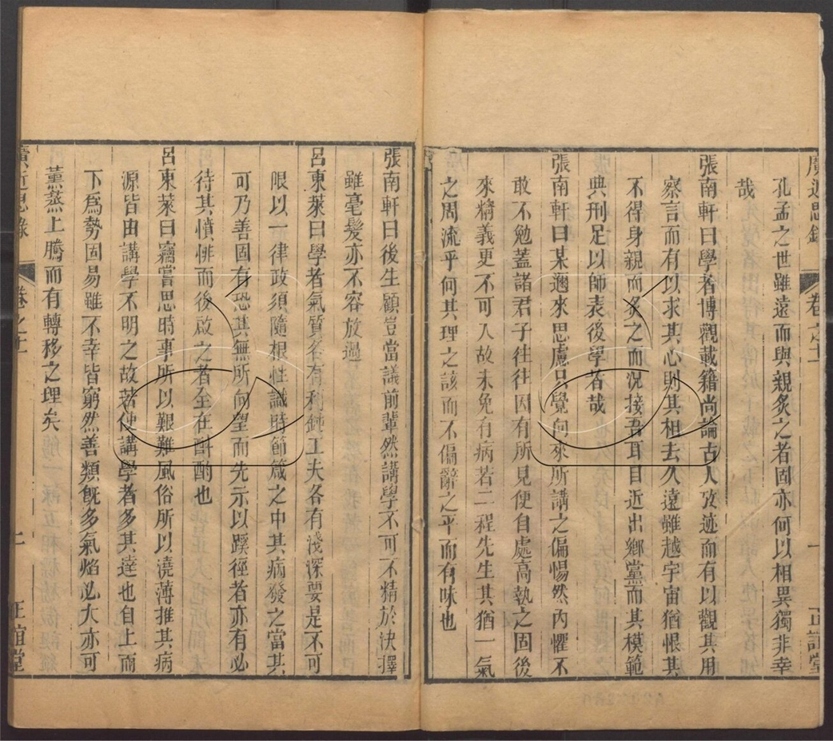 孔孟之世雖遠而與親炙之者固亦何以相異獨非幸
哉
張南軒曰學者博觀載籍尚論古人攷迹而有以觀其用
察言而有以求其心則其相去久遠雖越宇宙猶恨其
不得身親而炙之而況接吾耳目近出鄉黨而其模範
典刑足以師表後學者哉
張南軒曰某邇來思慮只覺向來所講之偏惕然內懼不
敢不勉蓋諸君子往往因有所見便自處高執之固後
來精義更不可入故未免有病若二程先生其猶一氣
之周流乎何其理之該而不偏辭之平而有味也
廣近思錄
卷之十一
一
正誼堂
張南軒曰後生顧豈當議前輩然講學不可不精於決擇
雖毫髮亦不容放過
呂東萊曰學者氣質各有利鈍工夫各有淺深要是不可
限以一律政須隨根性識時節箴之中其病發之當其
可乃善固有恐其無所向望而先示以蹊徑者亦有必
待其憤悱而後啟之者全在斟酌也
呂東萊曰竊嘗思時事所以艱難風俗所以澆薄推其病
源皆由講學不明之故若使講學者多其達也自上而
下為勢固易雖不幸皆窮然善類旣多氣焰必大亦可
薰蒸上騰而有轉移之理矣
廣近思錄
卷之十一
二
正誼堂